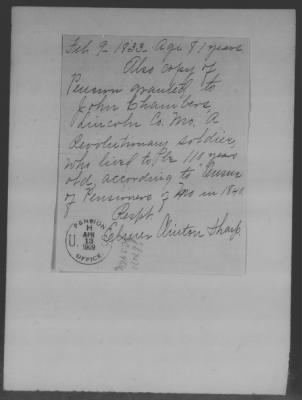 Feb 9 1833 Age 81 years
Also copy of
Pension granted to
John Chambers,
Lincoln Co. Mo. A
Revolutionary soldier,
who lived to be 110 years
old, according to Census
of Pensioners of Mo in 1840
Respt
Winton Sharp
PENSION
H
U. S.
APR
13
1909
OFFICE